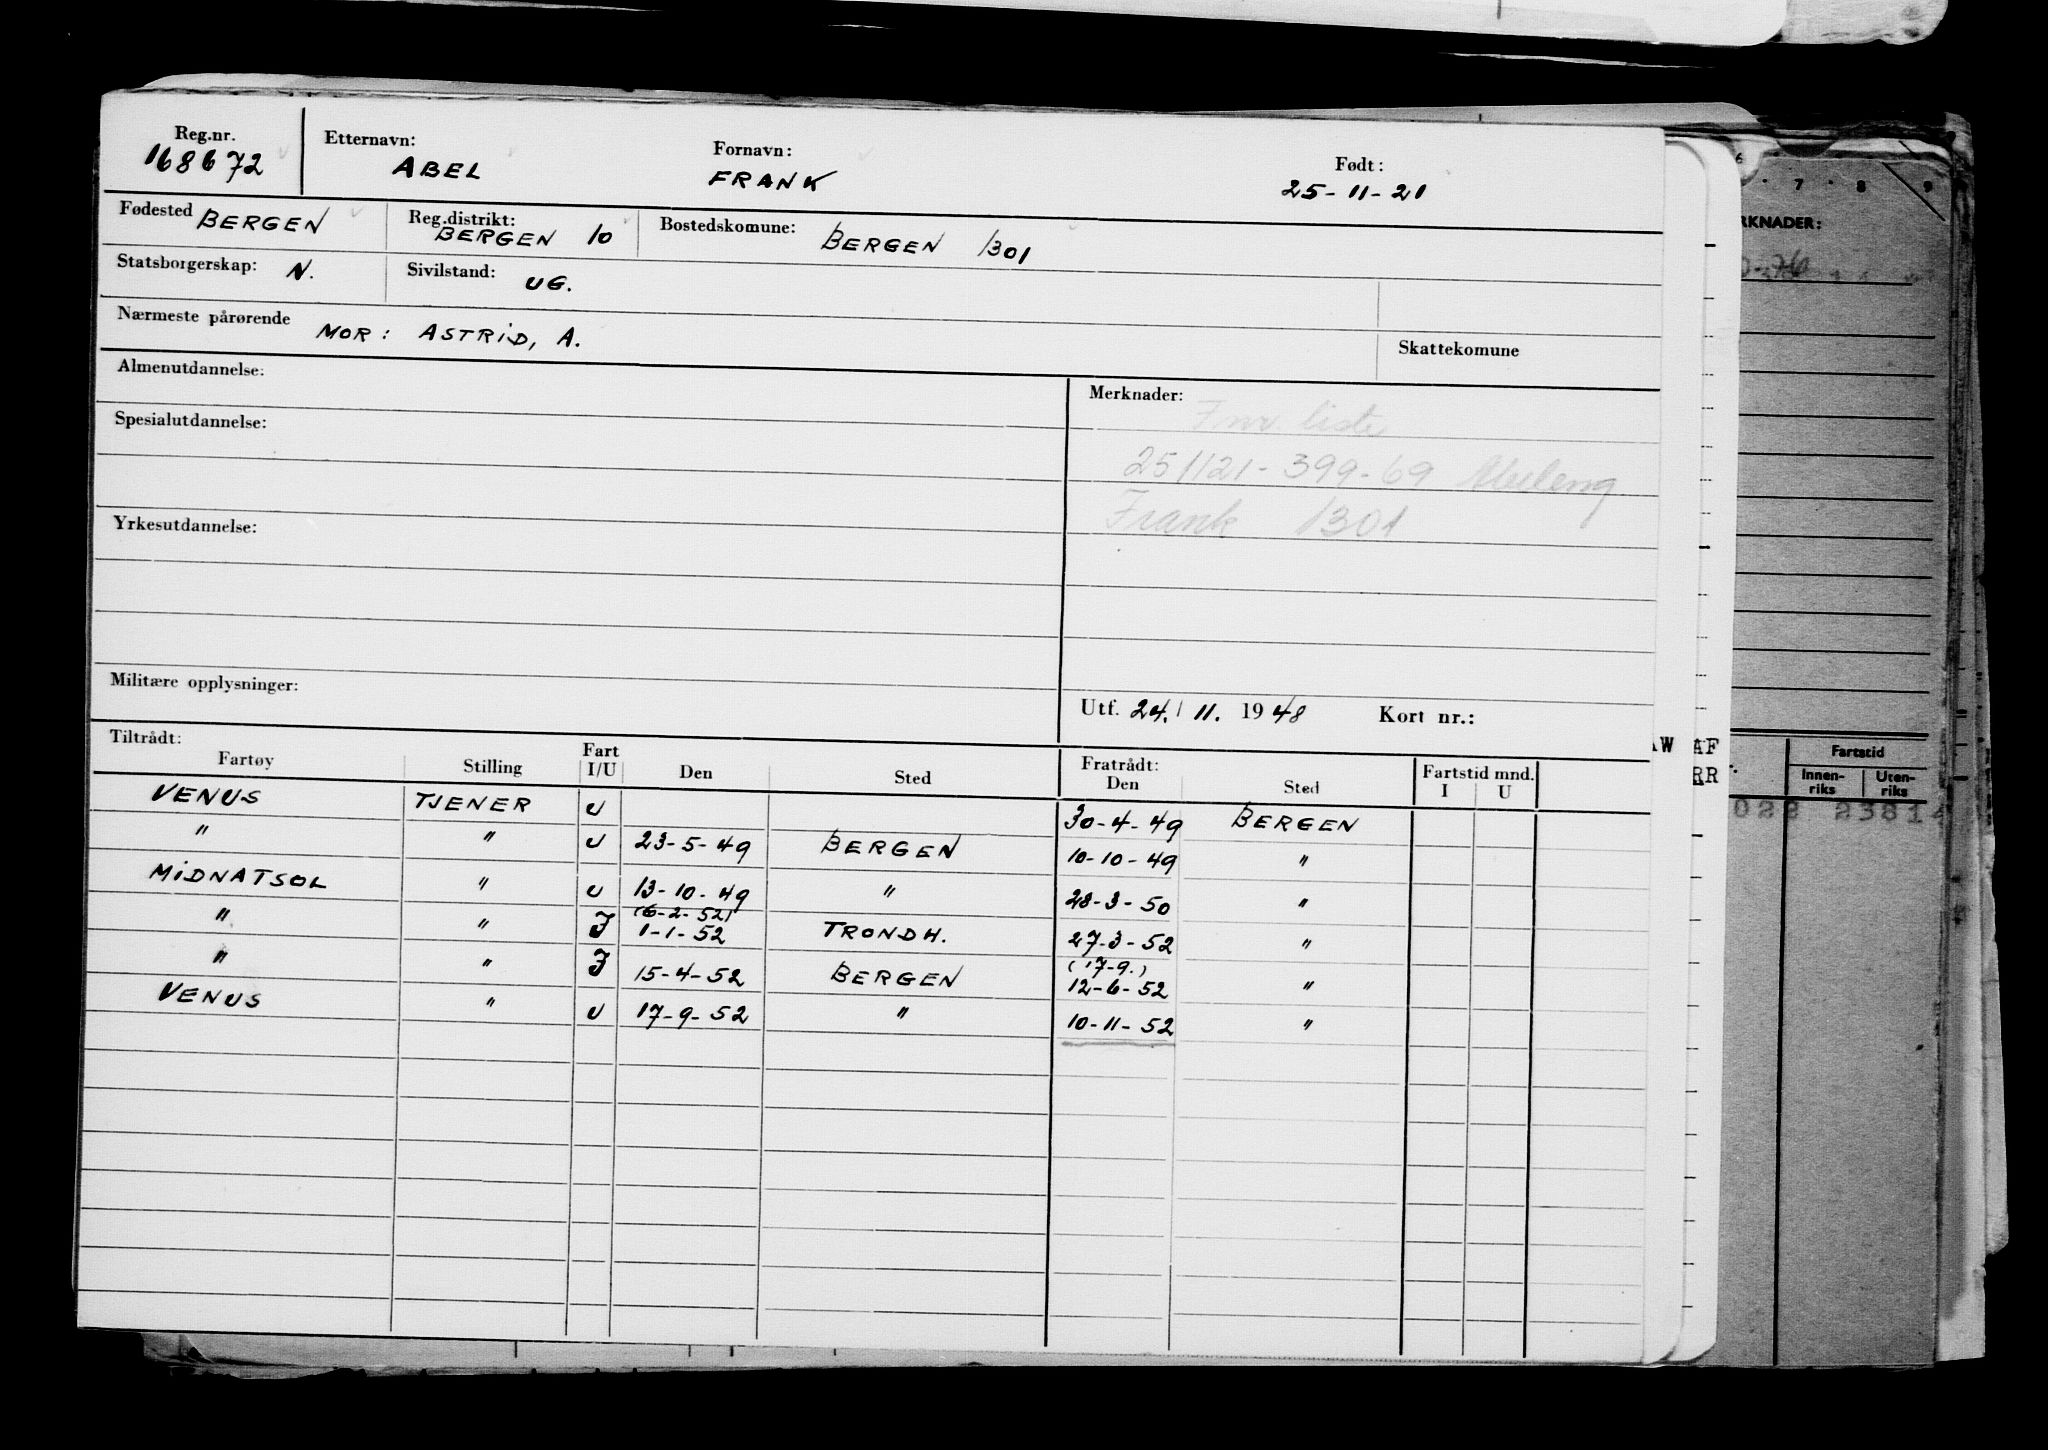 Reg.nr. Etternavn: Fornavn: Født:
168672 ABEL FRANK 25-11-21
Fødested BERGEN Reg.distrikt: BERGEN 10 Bostedskomune: BERGEN 1301
Statsborgerskap: N. Sivilstand: UG.
Nærmeste pårørende MOR: ASTRID, A. Skattekomune
Almenutdannelse: Merknader:
Fnr. liste
Spesialutdannelse:
251121-399-69
Frank 1301
Yrkesutdannelse:
Militære opplysninger:
Utf. 24./ 11. 1948 Kort nr.:
Tiltrådt: Fratrådt:
Fartøy Stilling Fart I/U Den Sted Den Sted Fartstid mnd. I U
VENUS TJENER U 30-4-49 BERGEN
" " U 23-5-49 BERGEN 10-10-49 "
MIDNATSOL " U 13-10-49 " 28-3-50 "
(6-2-52)
" " I 1-1-52 TRONDH. 27-3-52 "
(17-9.)
" " I 15-4-52 BERGEN 12-6-52 "
VENUS " U 17-9-52 " 10-11-52 "
6 7 8 9
RKNADER:
-76
AW AF
RR
Fartstid
Innen-
riks
Uten-
riks
022 23814